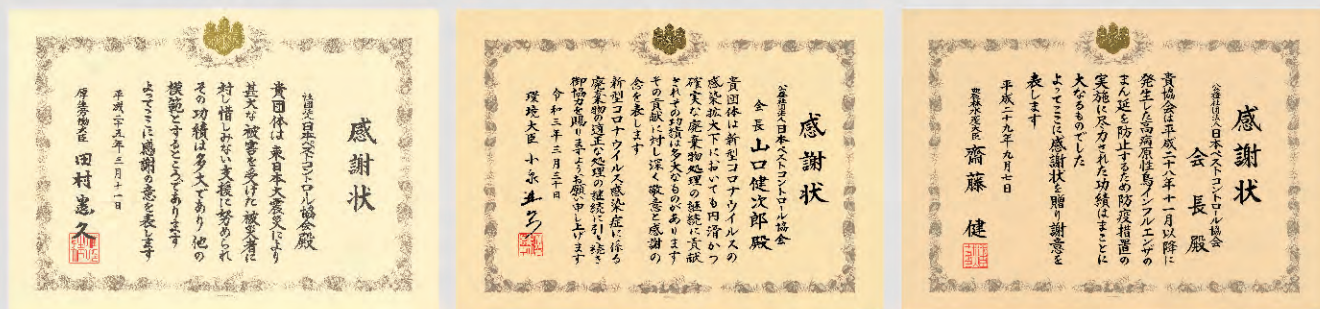 感謝状
社団法人日本ペストコントロール協会殿
貴団体は東日本大震災により
甚大な被害を受けた被災者に
対し惜しみない支援に努められ
その功績は多大であり他の
模範とするところであります
よってここに感謝の意を表します
平成二十五年三月十一日
厚生労働大臣 田村憲久
感謝状
公益社団法人日本ペストコントロール協会
会長 山口健次郎殿
貴団体は新型コロナウイルスの
感染拡大下においても円滑かつ
確実な廃棄物処理の継続に貢献
されその功績は多大なものがあります
その貢献に対し深く敬意と感謝の
念を表します
新型コロナウイルス感染症に係る
廃棄物の適正な処理の継続に引き続き
御協力を賜りますようお願い申し上げます
令和三年三月三十日
環境大臣 小泉進次郎
感謝状
公益社団法人日本ペストコントロール協会
会長殿
貴協会は平成二十八年十一月以降に
発生した高病原性鳥インフルエンザの
まん延を防止するため防疫措置の
実施に尽力された功績はまことに
大なるものでした
よってここに感謝状を贈り謝意を
表します
平成二十九年九月七日
農林水産大臣 齋藤健